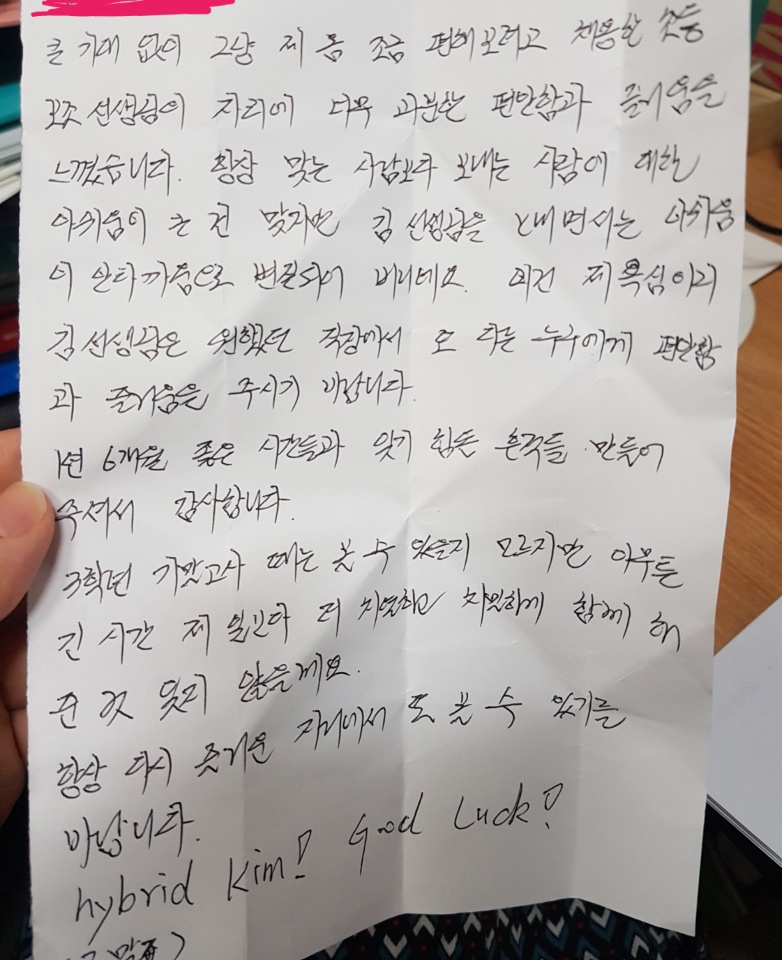 큰 기대 없이 그냥 제 몸 조금 편해보려고 채용한 초등
보조 선생님의 자리에 너무 과분한 편안함과 즐거움을
느꼈습니다. 항상 맞는 사람보다 보내는 사람에 대한
아쉬움이 큰 건 맞지만 김 선생님을 보내면서는 아쉬움
이 안타까움으로 변질되어 버리네요. 이건 제 욕심이리
김 선생님은 원했던 직장에서 또 다른 누구에게 편안함
과 즐거움을 주시기 바랍니다.
1년 6개월 좋은 시간들과 잊기 힘든 흔적들 만들어
주셔서 감사합니다.
3학년 기말고사 때는 볼 수 있을지 모르지만 아무튼
긴 시간 제 일보다 더 치열하고 치밀하게 함께 해
준 것 잊지 않을께요.
항상 다시 즐거운 자리에서 또 볼 수 있기를
바랍니다.
hybrid Kim! Good Luck!